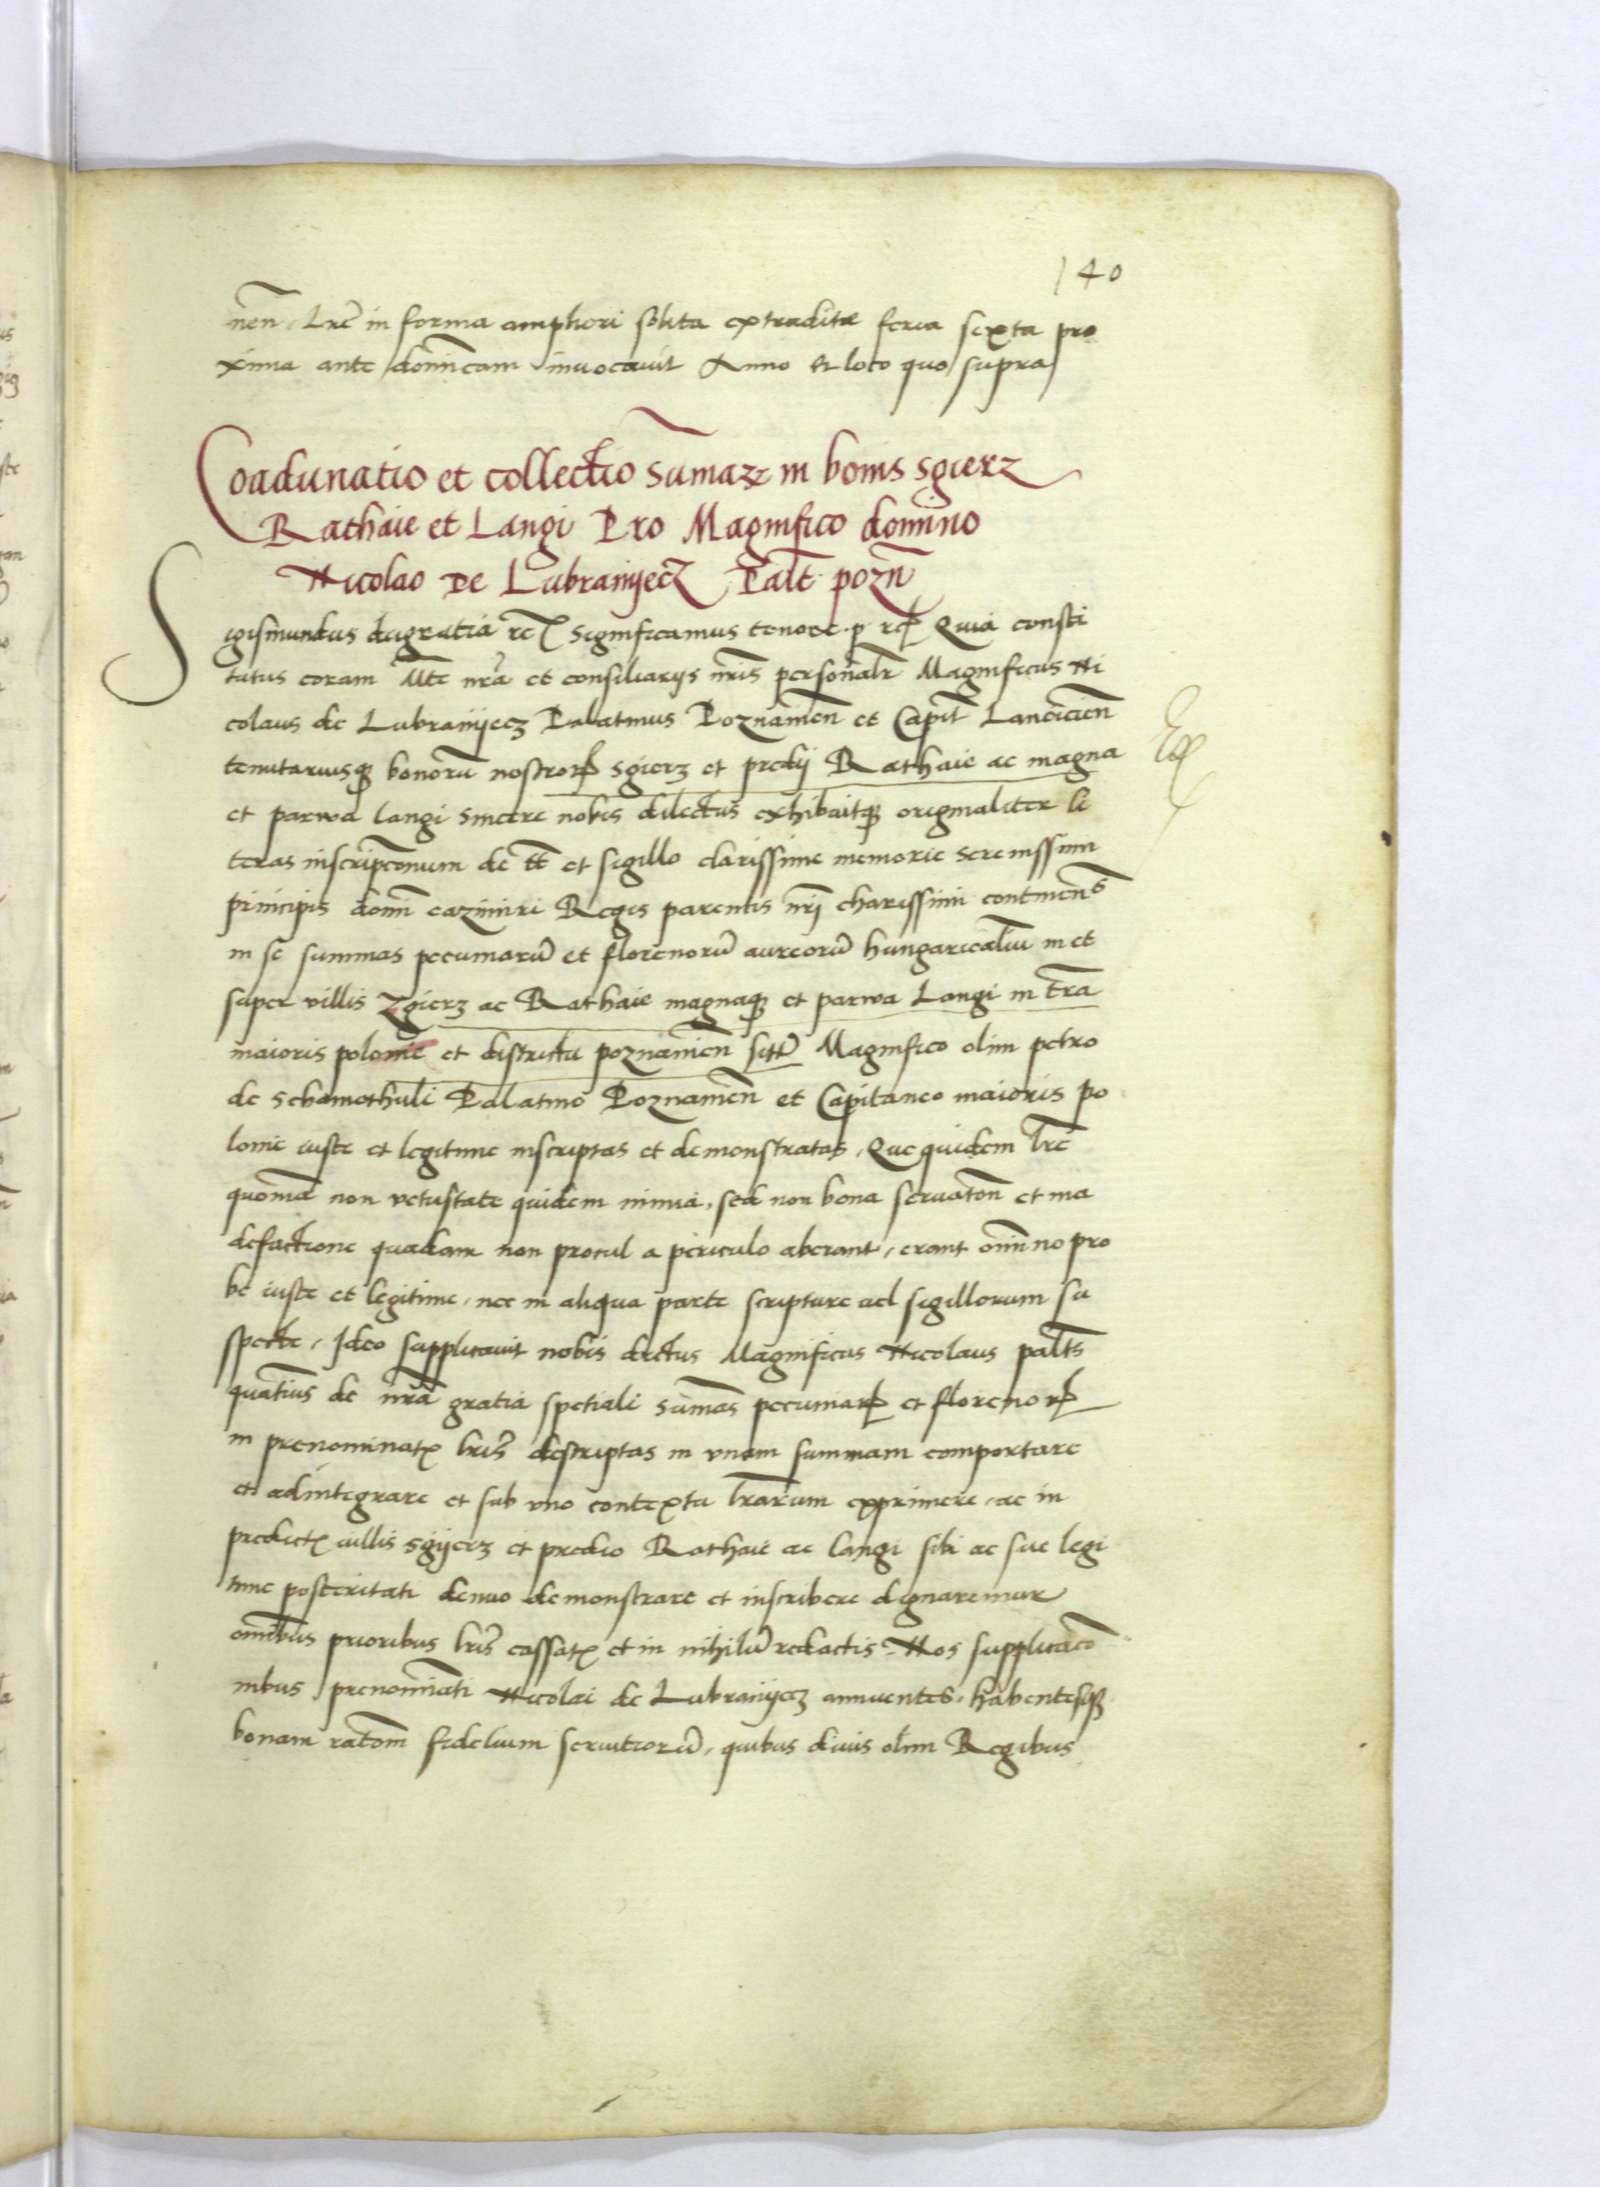 140
nen̄. Lrē in forma ampliori solita extraditæ feria sexta pro
xima ante domīcam invocavit Anno et loco quo supra
Coadunatio et collectio sūmaꝝ in bonis sgierz
Rathaie et Langi Pro Magnifico domino
Nicolao De Lubranÿecz Palt̄. pozn̄
Sigismundus dei gratia rc̄ Significamus tenore. p. rc̄ Quia consti
tutus coram Mte nr̄a et consiliarijs nr̄is personalr̄ Magnificus Ni
colaus de Lubranÿecz Palatinus Poznanien̄ et Capit̄ Lancicien̄
tenutariusqꝫ bonorū nostroꝝ sgierz et predij Rathaie ac magna
et parwa langi sincere nobis dilectus exhibuitqꝫ originaliter li
teras inscripcōnum de tt̄ et sigillo clarissime memorie serenissimi
principis domī cazimiri Regis parentis nr̄i charissimi continen̄s
in se summas pecuniarū et florenorū aureorū hungaricaliū in et
super villis Zgierz ac Rathaie magnaqꝫ et parwa Langi in tr̄ra
maioris polonie et districtu poznanien̄ sitt̄ Magnifico olim petro
de Schamothuli Palatino Poznanien̄ et Capitaneo maioris po
lonie iuste et legitime inscriptas et demonstratas. Que quidem lrē
quoniā non vetustate quidem nimia, sed non bona servatōn et ma
defactione quadam non procul a periculo aberant, erant omnino pro
be iuste et legitime, nec in aliqua parte scripture vel sigillorum su
specte, Ideo supplicavit nobis dictus Magnificus Nicolaus palt̄s
quatīus de nr̄a gratia spetiali sūmas pecuniaꝝ et florenoꝝ
in prenominatꝭ lr̄is descriptas in vnam summam comportare
et adintegrare et sub vno contextu lr̄arum exprimere, ac in
predictꝭ villis sgÿerz et predio Rathaie ac langi sibi ac sue legi
time posteritati denuo demonstrare et inscribere dignaremur
omībus prioribus lr̄is cassatꝭ et in nihilū redactis. Nos supplicacō
nibus prenomīati Nicolai de Lubranÿecz annuentes, habentesqꝫ
bonam ratōm fidelium servitiorū, quibus divis olim Regibus